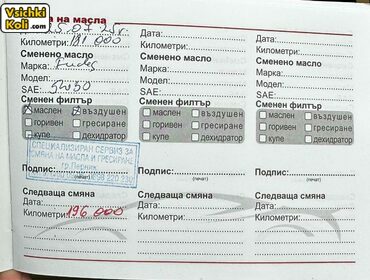 Vsichki
Koli .com
на масла
Дата:
Дата:
Километри: 181 000
Километри:
Километри:
Сменено масло
Сменено масло
Сменено масло
Марка:
Марка:
Марка:
Модел:
Модел:
Модел:
SAE: 5w30
SAE:
SAE:
Сменен филтър
Сменен филтър
Сменен филтър
маслен въздушен
маслен въздушен
маслен въздушен
горивен гресиране
горивен гресиране
горивен гресиране
купе дехидратор
купе дехидратор
купе дехидратор
СПЕЦИАЛИЗИРАН СЕРВИЗ ЗА
СМЯНА НА МАСЛА И ГРЕСИРАНЕ
гр. Перник
Подпис:
Подпис:
Подпис:
(печат)
(печат)
Следваща смяна
Следваща смяна
Следваща смяна
Дата:
Дата:
Дата:
Километри: 196 000
Километри:
Километри: